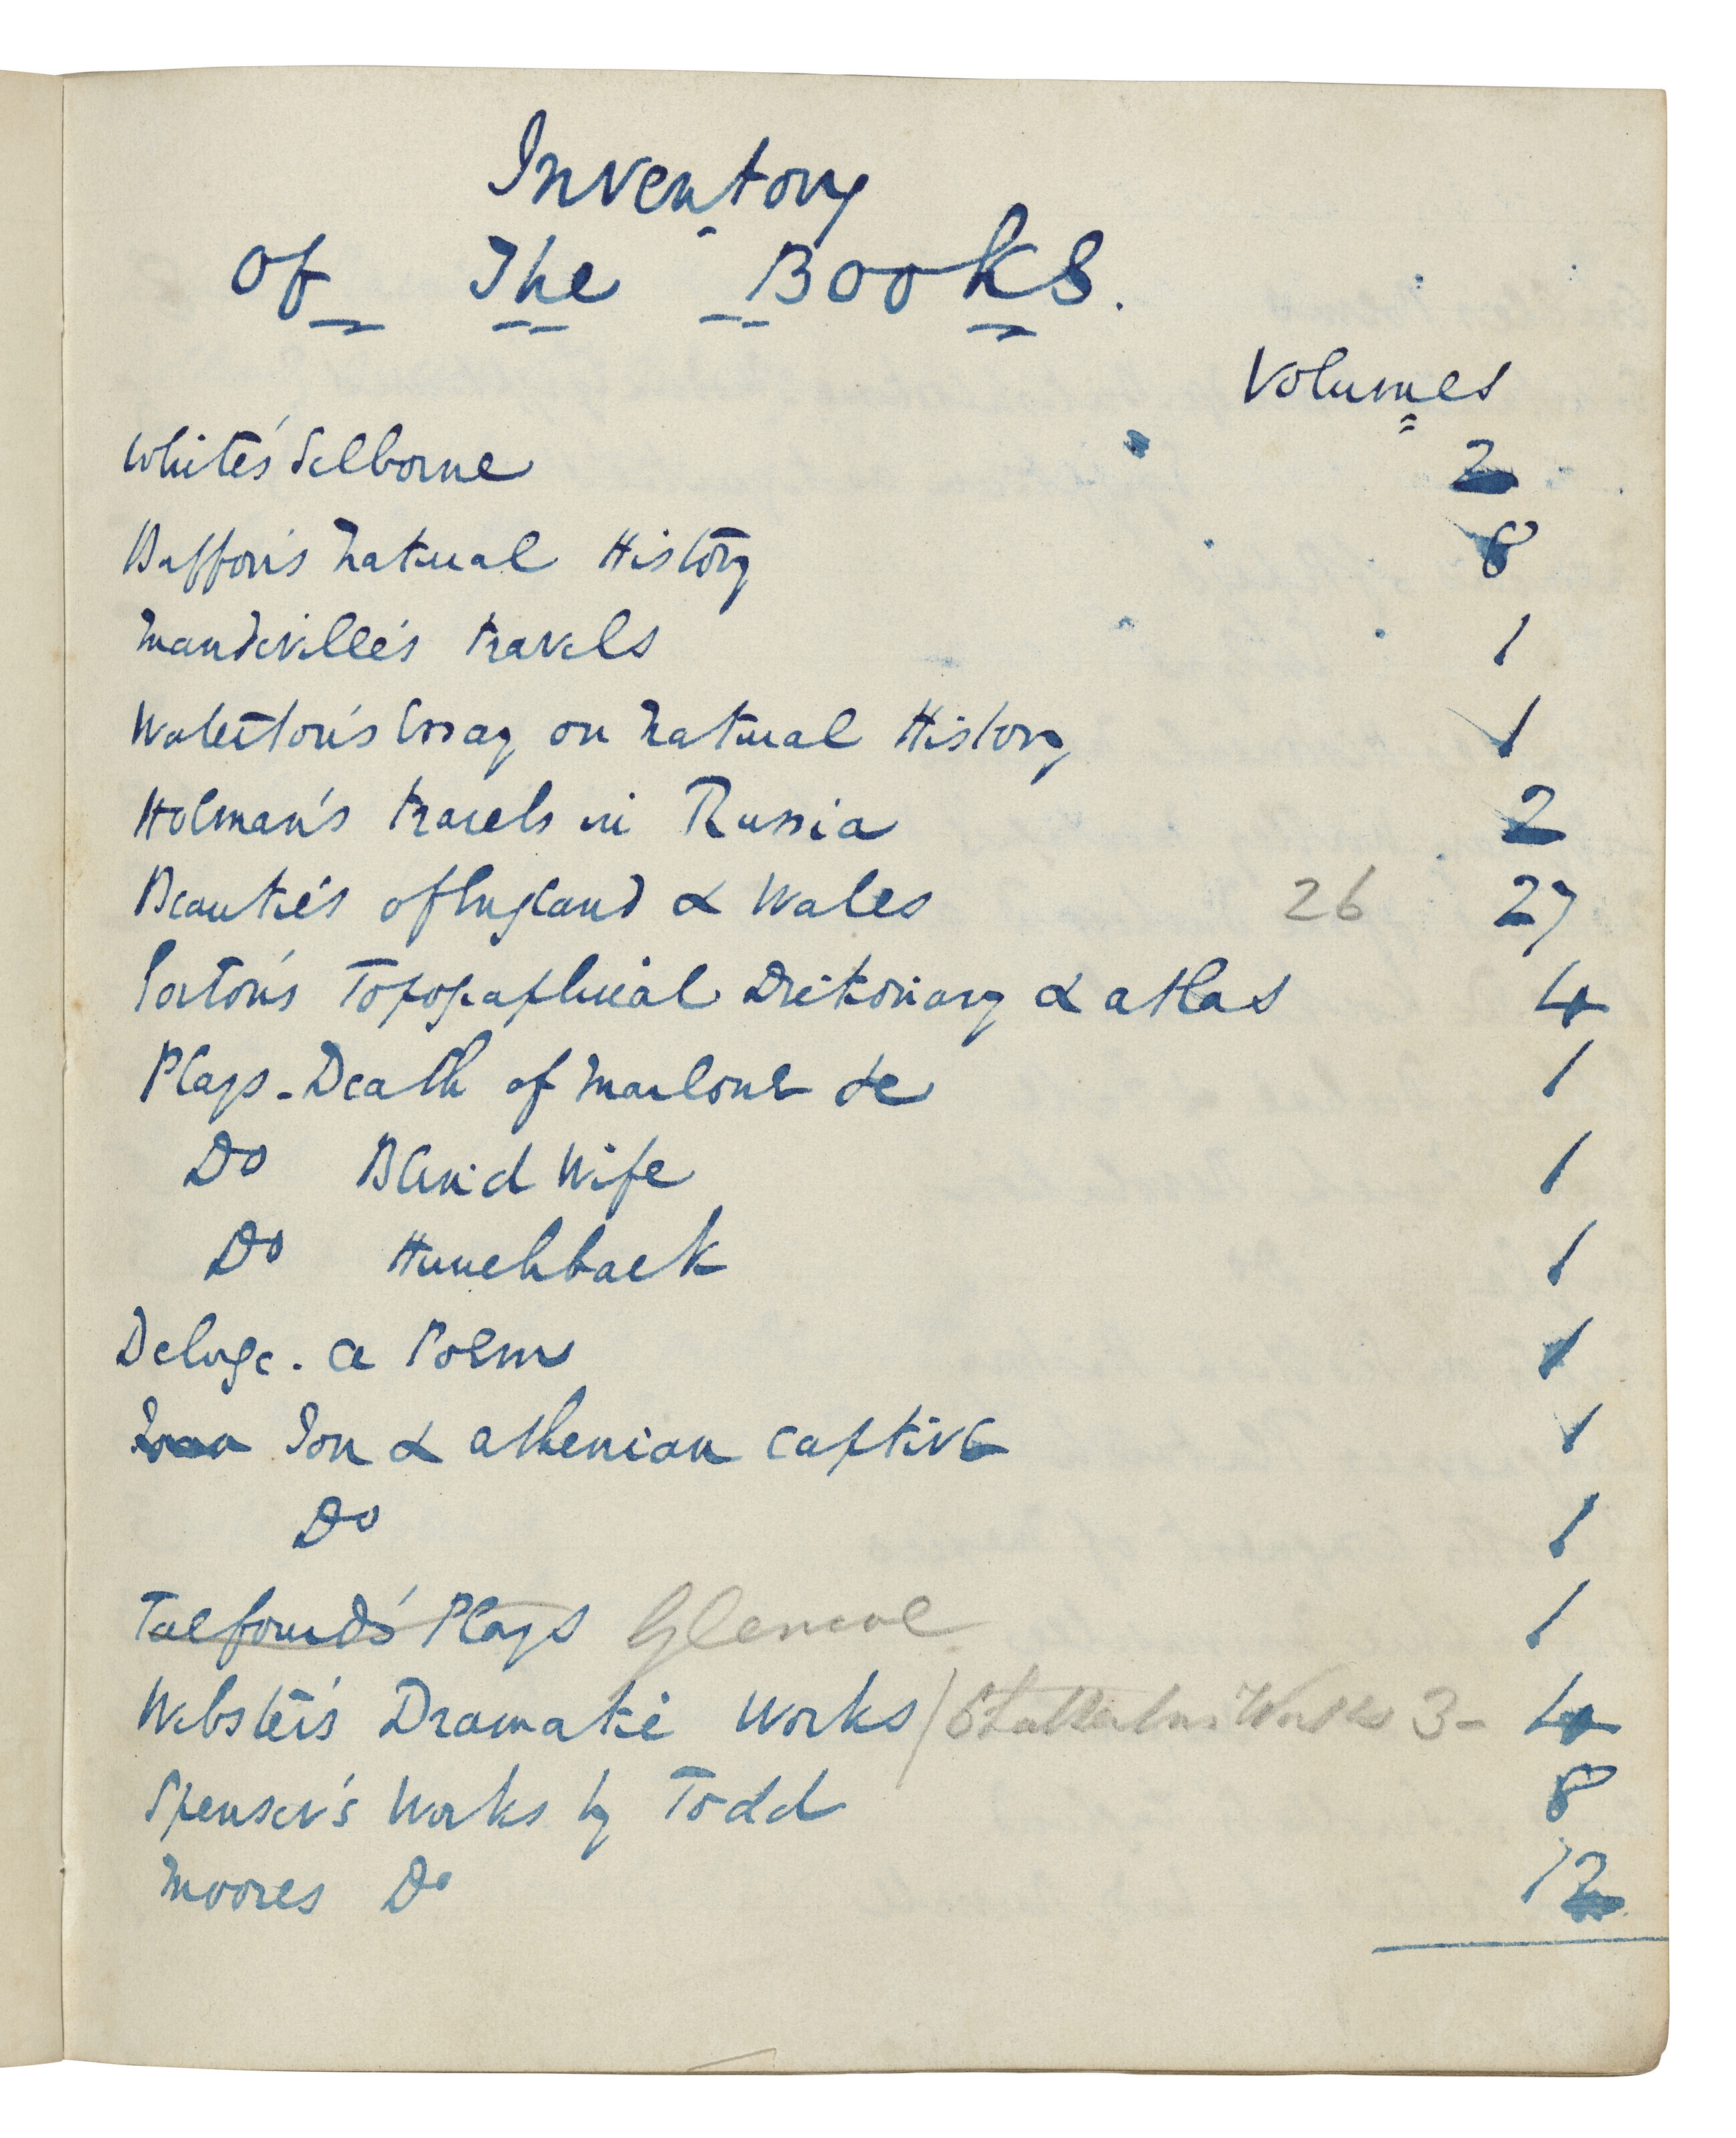 Inventory
Of The Books.
Volumes
White's Selborne 2
Buffon's Natural History 8
Mandeville's travels 1
Waterton's Essay on Natural History 1
Holman's travels in Russia 2
Beautie's of England & Wales 26 27
Gorton's Topographical Dictionary & atlas 4
Plays - Death of Marlowe &c 1
Do Blind Wife 1
Do Hunchback 1
Deluge. a Poem 1
Ion & athenian captive 1
Do 1
Talfourd's Plays Glencoe 1
Webster's Dramatic Works / Works 3- 4
Spenser's Works by Todd 8
Moores Do 12